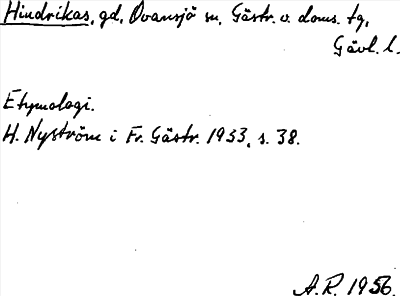 Hindrikas, gd, Ovansjö sn, Gästr. v. doms. tg,
Gävl. l.
Etymologi.
H. Nyström i Fr. Gästr. 1953, s. 38.
A.R. 1956.